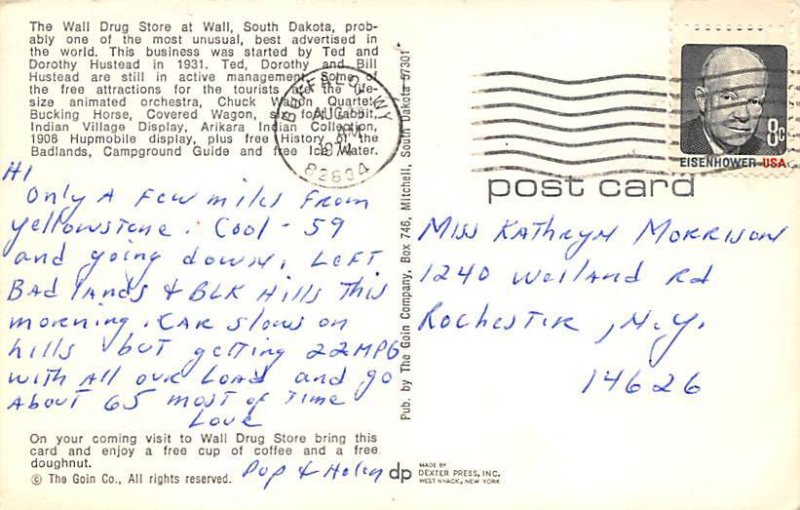 The Wall Drug Store at Wall, South Dakota, prob-
ably one of the most unusual, best advertised in
the world. This business was started by Ted and
Dorothy Hustead in 1931. Ted, Dorothy and Bill
Hustead are still in active management. Some of
the free attractions for the tourists are the life-
size animated orchestra, Chuck Wagon Quartet,
Bucking Horse, Covered Wagon, six foot rabbit,
Indian Village Display, Arikara Indian Collection,
1908 Hupmobile display, plus free History of the
Badlands, Campground Guide and free Ice Water.
HI
Only A Few miles From
Yellowstone. Cool - 59
and going down. Left
Bad lands & BLK Hills This
morning. CAR slows on
hills but getting 22MPG
with All our Load and go
About 65 most of Time
Love
Pop & Helen
On your coming visit to Wall Drug Store bring this
card and enjoy a free cup of coffee and a free
doughnut.
© The Goin Co., All rights reserved.
Pub. by The Goin Company, Box 746, Mitchell, South Dakota 57301
dp
MADE BY
DEXTER PRESS, INC.
WEST NYACK, NEW YORK
BUFFALO, WY
AUG
PM
1974
82834
8c
EISENHOWER USA
post card
Miss Kathryn Morrison
1240 Weiland Rd
Rochester, N.Y.
14626